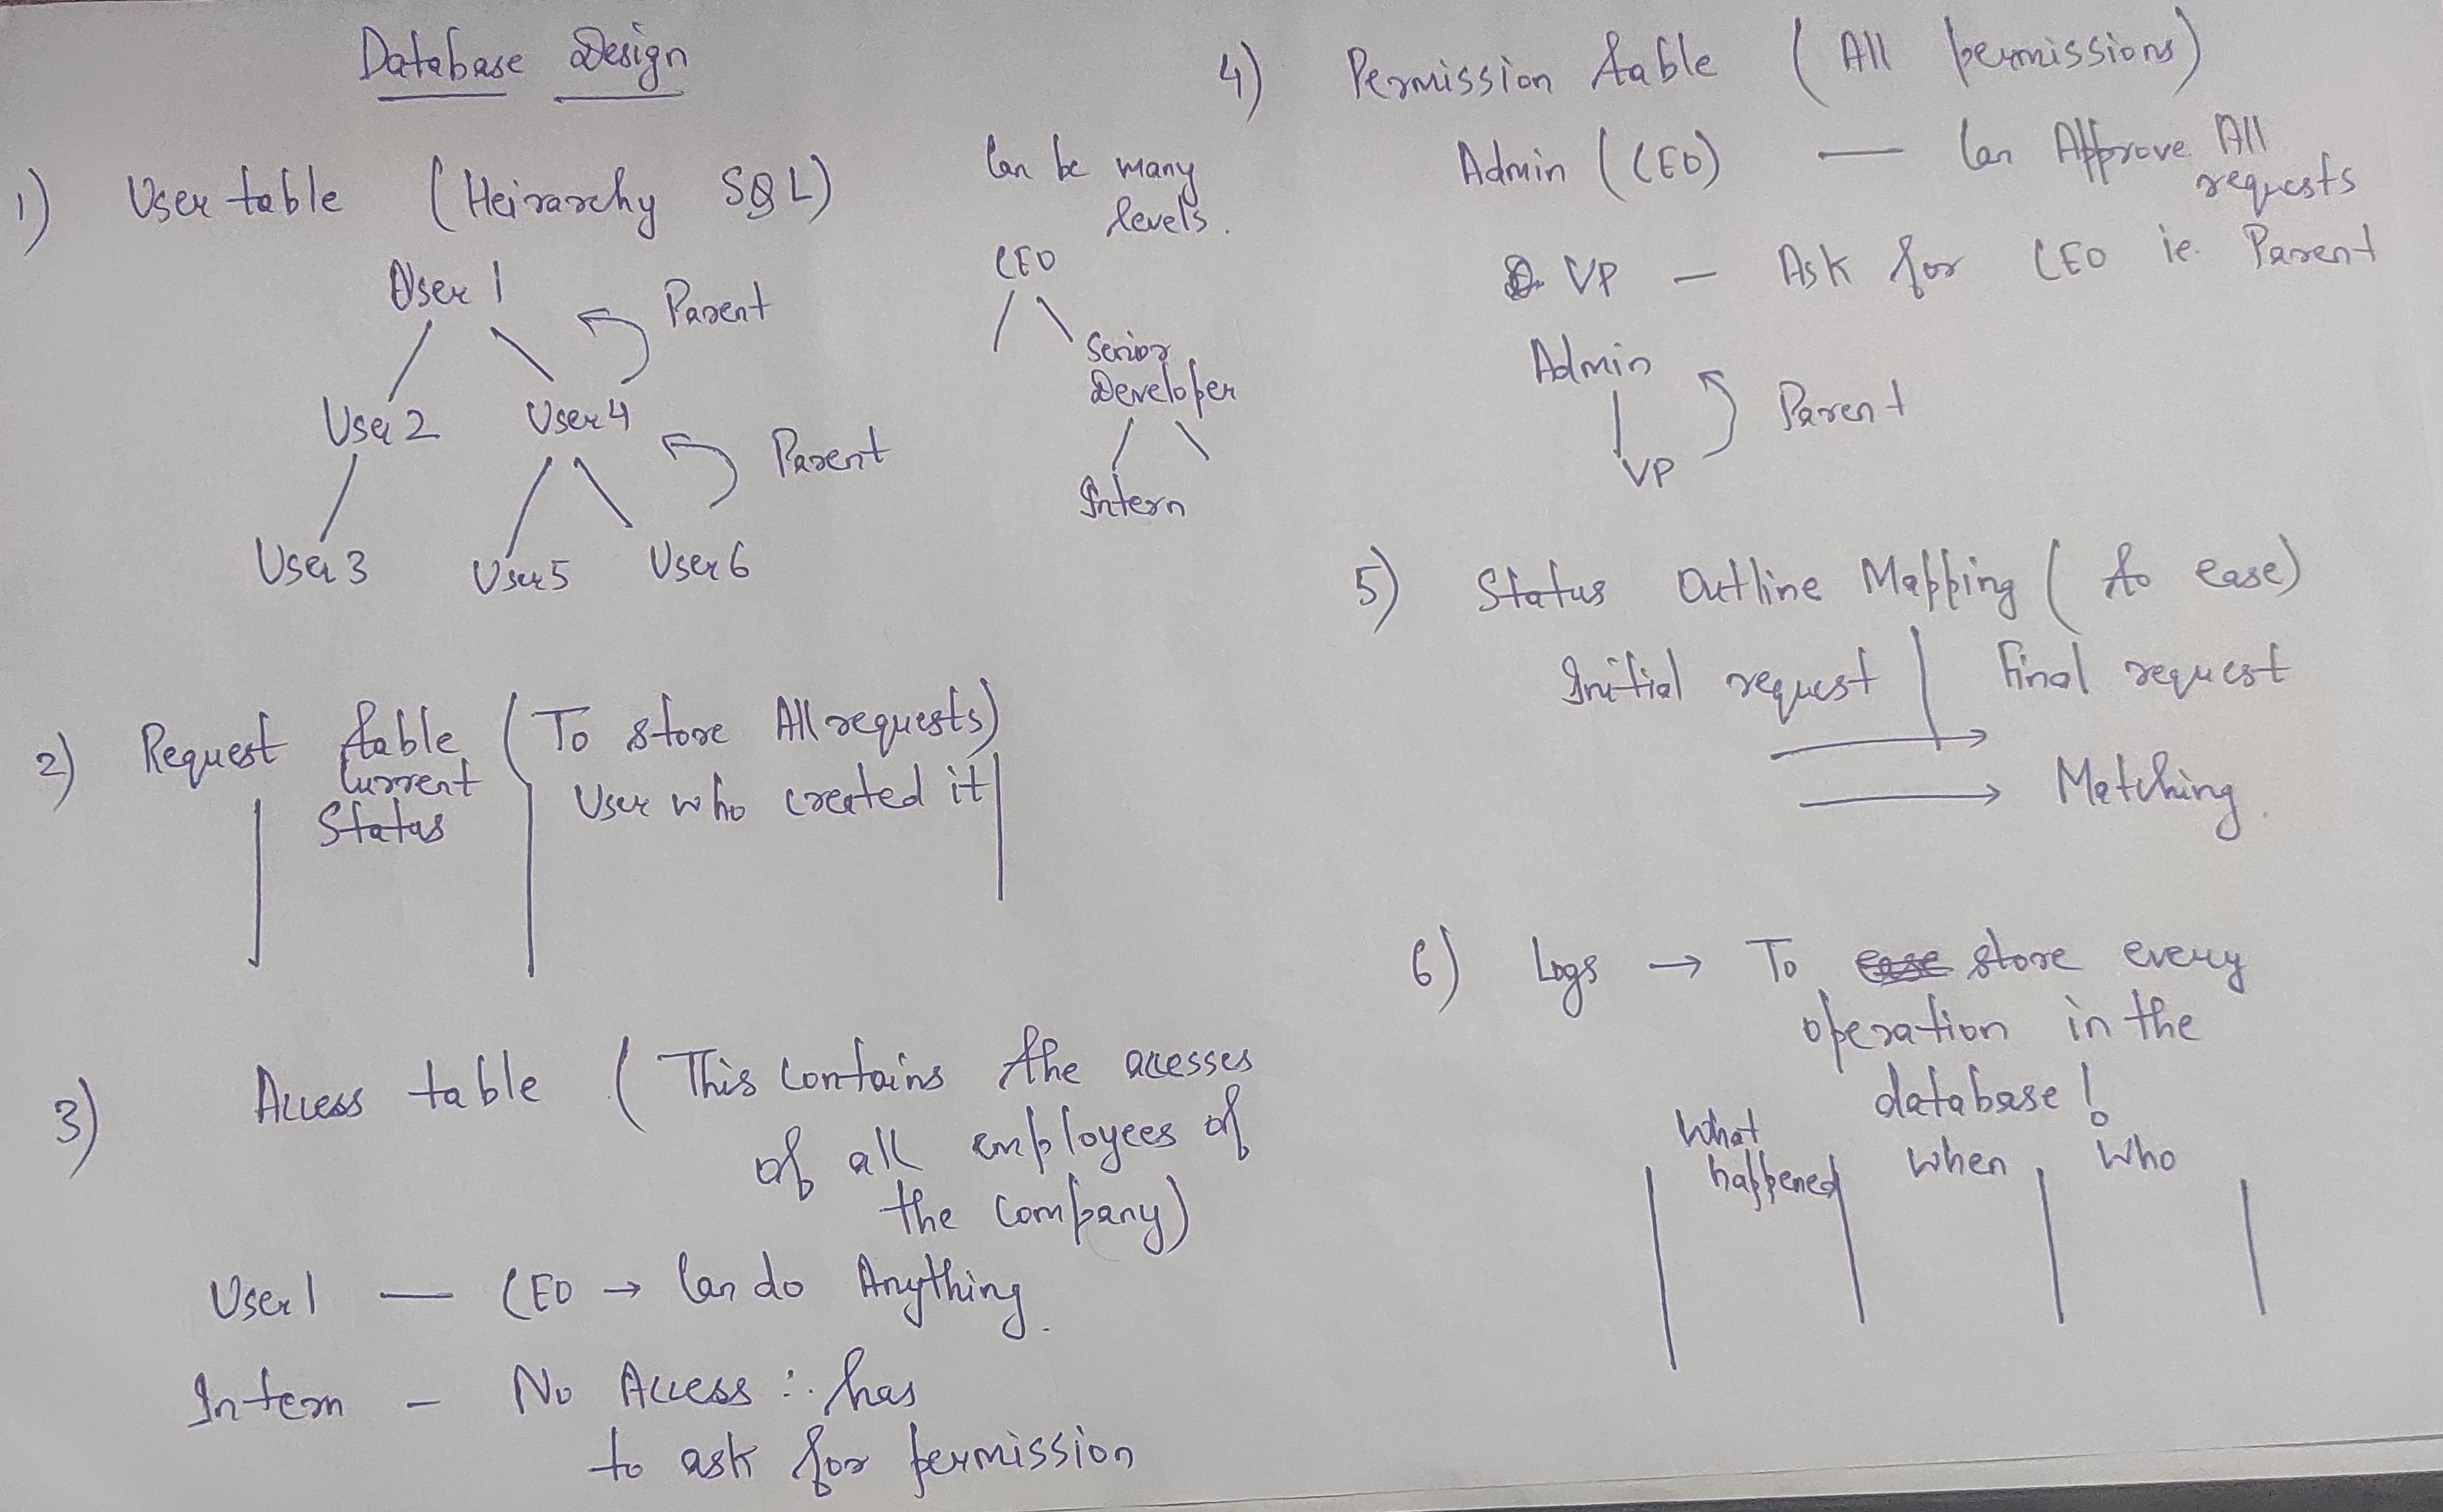 Database Design
1) User table (Heirarchy SQL)
User 1
Parent
User 2 User 4
Parent
User 3 User 5 User 6
Can be many
levels.
CEO
Senior
Developer
Intern
2) Request table (To store All requests)
Current
Status
User who created it
3) Access table (This contains the acesses
of all employees of
the company)
User 1 — CEO → Can do Anything.
Intern – No Access ∴ has
to ask for permission
4) Permission table (All permissions)
Admin (CEO) — Can Approve All
requests
VP – Ask for CEO ie. Parent
Admin
Parent
VP
5) Status Outline Mapping (to ease)
Initial request | Final request
Matching.
6) Logs → To store every
operation in the
database!
What
happened When Who